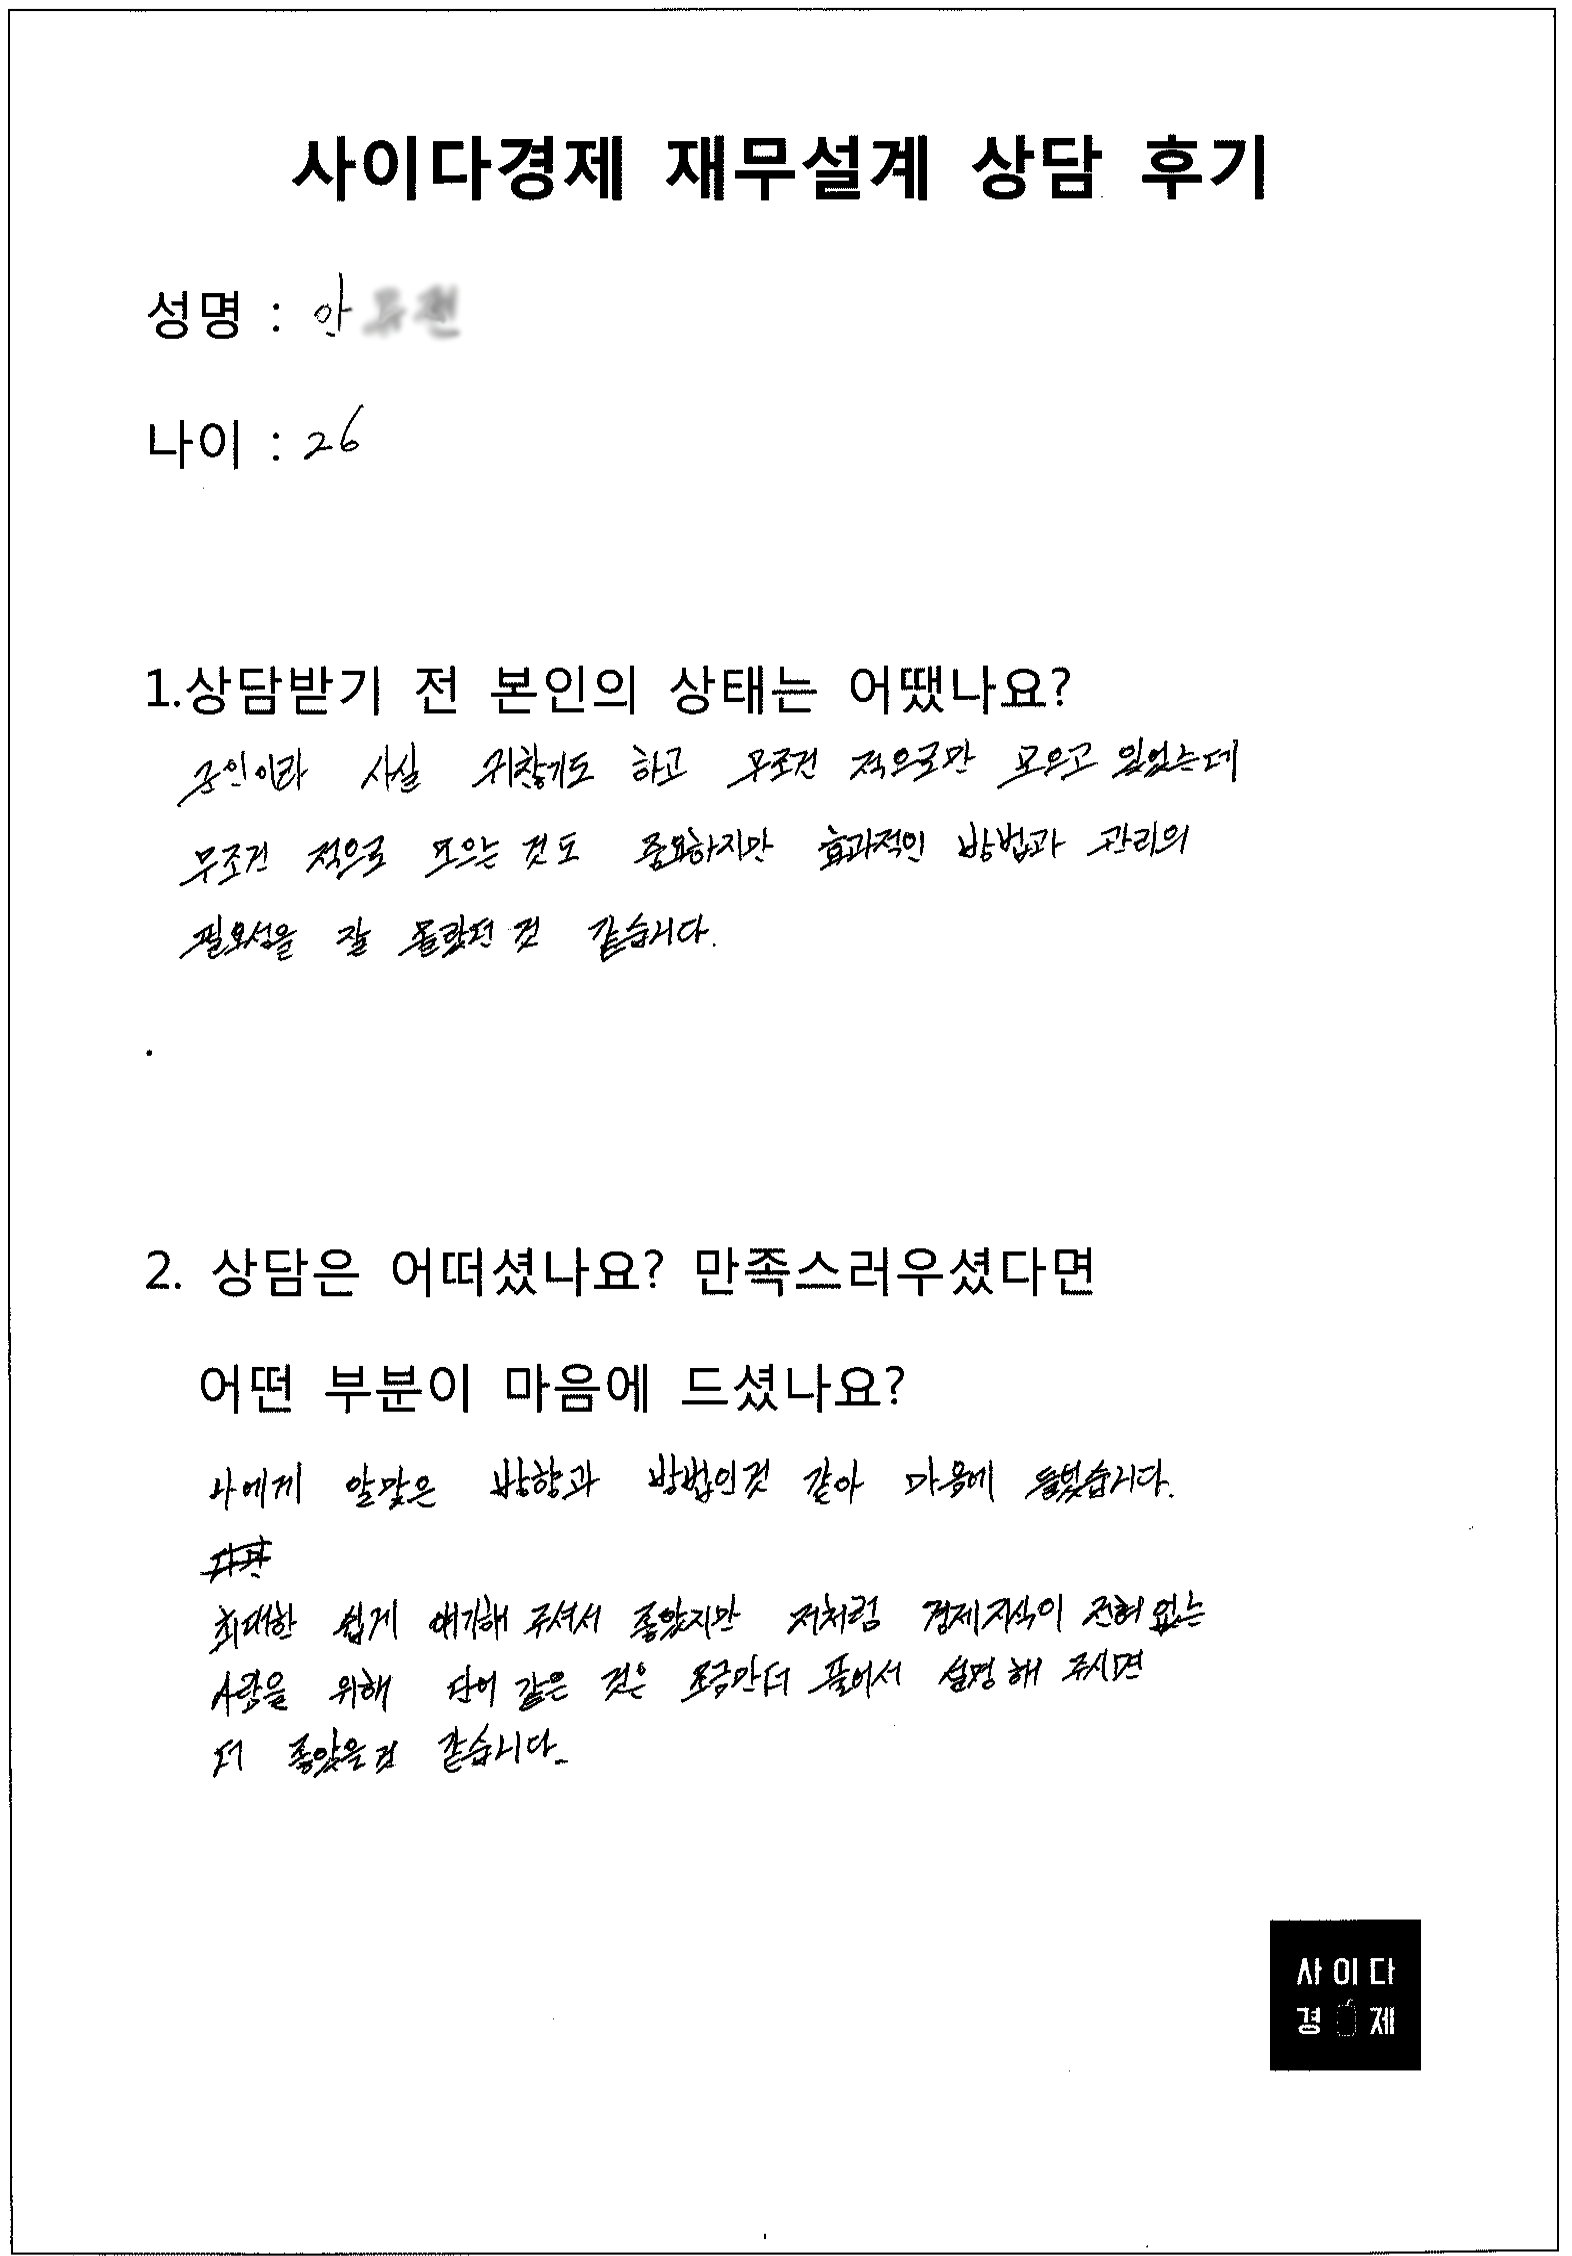 사이다경제 재무설계 상담 후기
성명 : 안
나이 : 26
1.상담받기 전 본인의 상태는 어땠나요?
군인이라 사실 귀찮기도 하고 무조건 적으로만 모으고 있었는데
무조건 적으로 모으는 것도 중요하지만 효과적인 방법과 관리의
필요성을 잘 몰랐던 것 같습니다.
2. 상담은 어떠셨나요? 만족스러우셨다면
어떤 부분이 마음에 드셨나요?
나에게 알맞은 방향과 방법인것 같아 마음에 들었습니다.
최대한 쉽게 얘기해 주셔서 좋았지만 저처럼 경제지식이 전혀 없는
사람을 위해 단어 같은 것은 조금만더 풀어서 설명해 주시면
더 좋았을것 같습니다.
사이다
경제